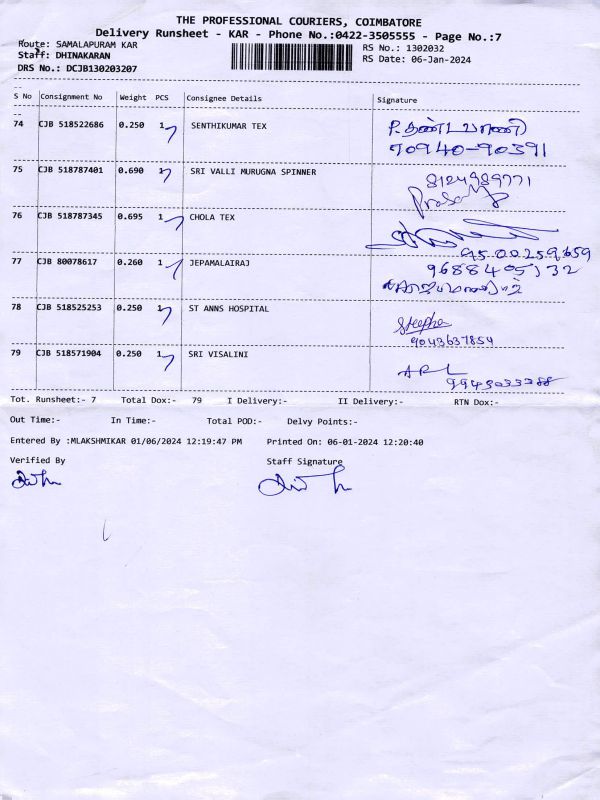 THE PROFESSIONAL COURIERS, COIMBATORE
Delivery Runsheet - KAR - Phone No.:0422-3505555 - Page No.:7
Route: SAMALAPURAM KAR
RS No.: 1302032
Staff: DHINAKARAN
RS Date: 06-Jan-2024
DRS No.: DCJB130203207
S No Consignment No Weight PCS Consignee Details Signature
74 CJB 518522686 0.250 1 SENTHIKUMAR TEX P. தண்டபாணி
70940-90391
75 CJB 518787401 0.690 1 SRI VALLI MURUGNA SPINNER 8124989771
76 CJB 518787345 0.695 1 CHOLA TEX
95 00259659
77 CJB 80078617 0.260 1 JEPAMALAIRAJ 9688405132
78 CJB 518525253 0.250 1 ST ANNS HOSPITAL Steepha
9043637854
79 CJB 518571904 0.250 1 SRI VISALINI
Tot. Runsheet:- 7 Total Dox:- 79 I Delivery:- II Delivery:- RTN Dox:-
Out Time:- In Time:- Total POD:- Delvy Points:-
Entered By :MLAKSHMIKAR 01/06/2024 12:19:47 PM Printed On: 06-01-2024 12:20:40
Verified By Staff Signature